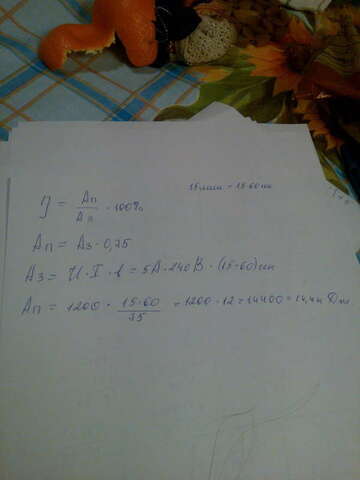 15 мин = 15·60 сек
η = Aп/Aз · 100%
Aп = Aз · 0,75
Aз = U · I · t = 5A · 240 B · (15·60) сек
Aп = 1200 · 15·60/75 = 1200 · 12 = 14400 = 14,4 к Дж